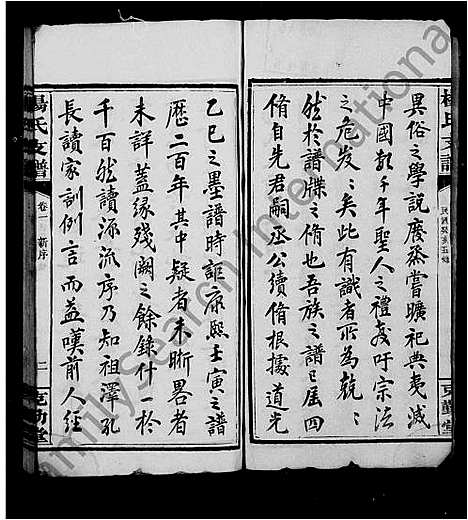 異俗之學說廢烝嘗曠祀典夷滅
中國數千年聖人之禮教吁宗法
之危岌岌矣此有識者所為兢兢
然於譜牒之脩也吾族之譜已届四
脩自先君嗣丞公續脩根據道光
民國癸亥五脩
克勤堂
乙巳之墨譜時詎康熙壬寅之譜
歷二百年其中疑者未晰畧者
未詳蓋緣殘闕之餘錄什一於
千百然讀源流序乃知祖澤孔
長讀家訓例言而益嘆前人經
楊氏支譜
卷一 新序
二
克勤堂
FamilySearch International